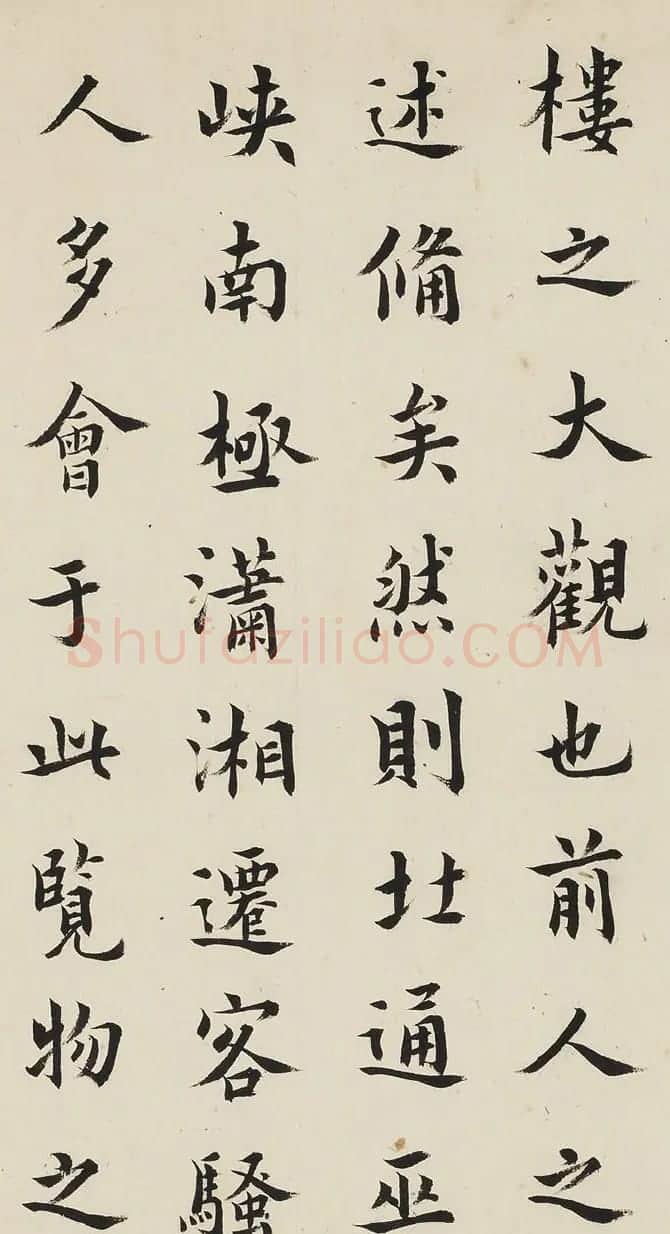 樓之大觀也前人之
述備矣然則北通巫
峽南極瀟湘遷客騷
人多會于此覽物之
Shufaziliao.COM